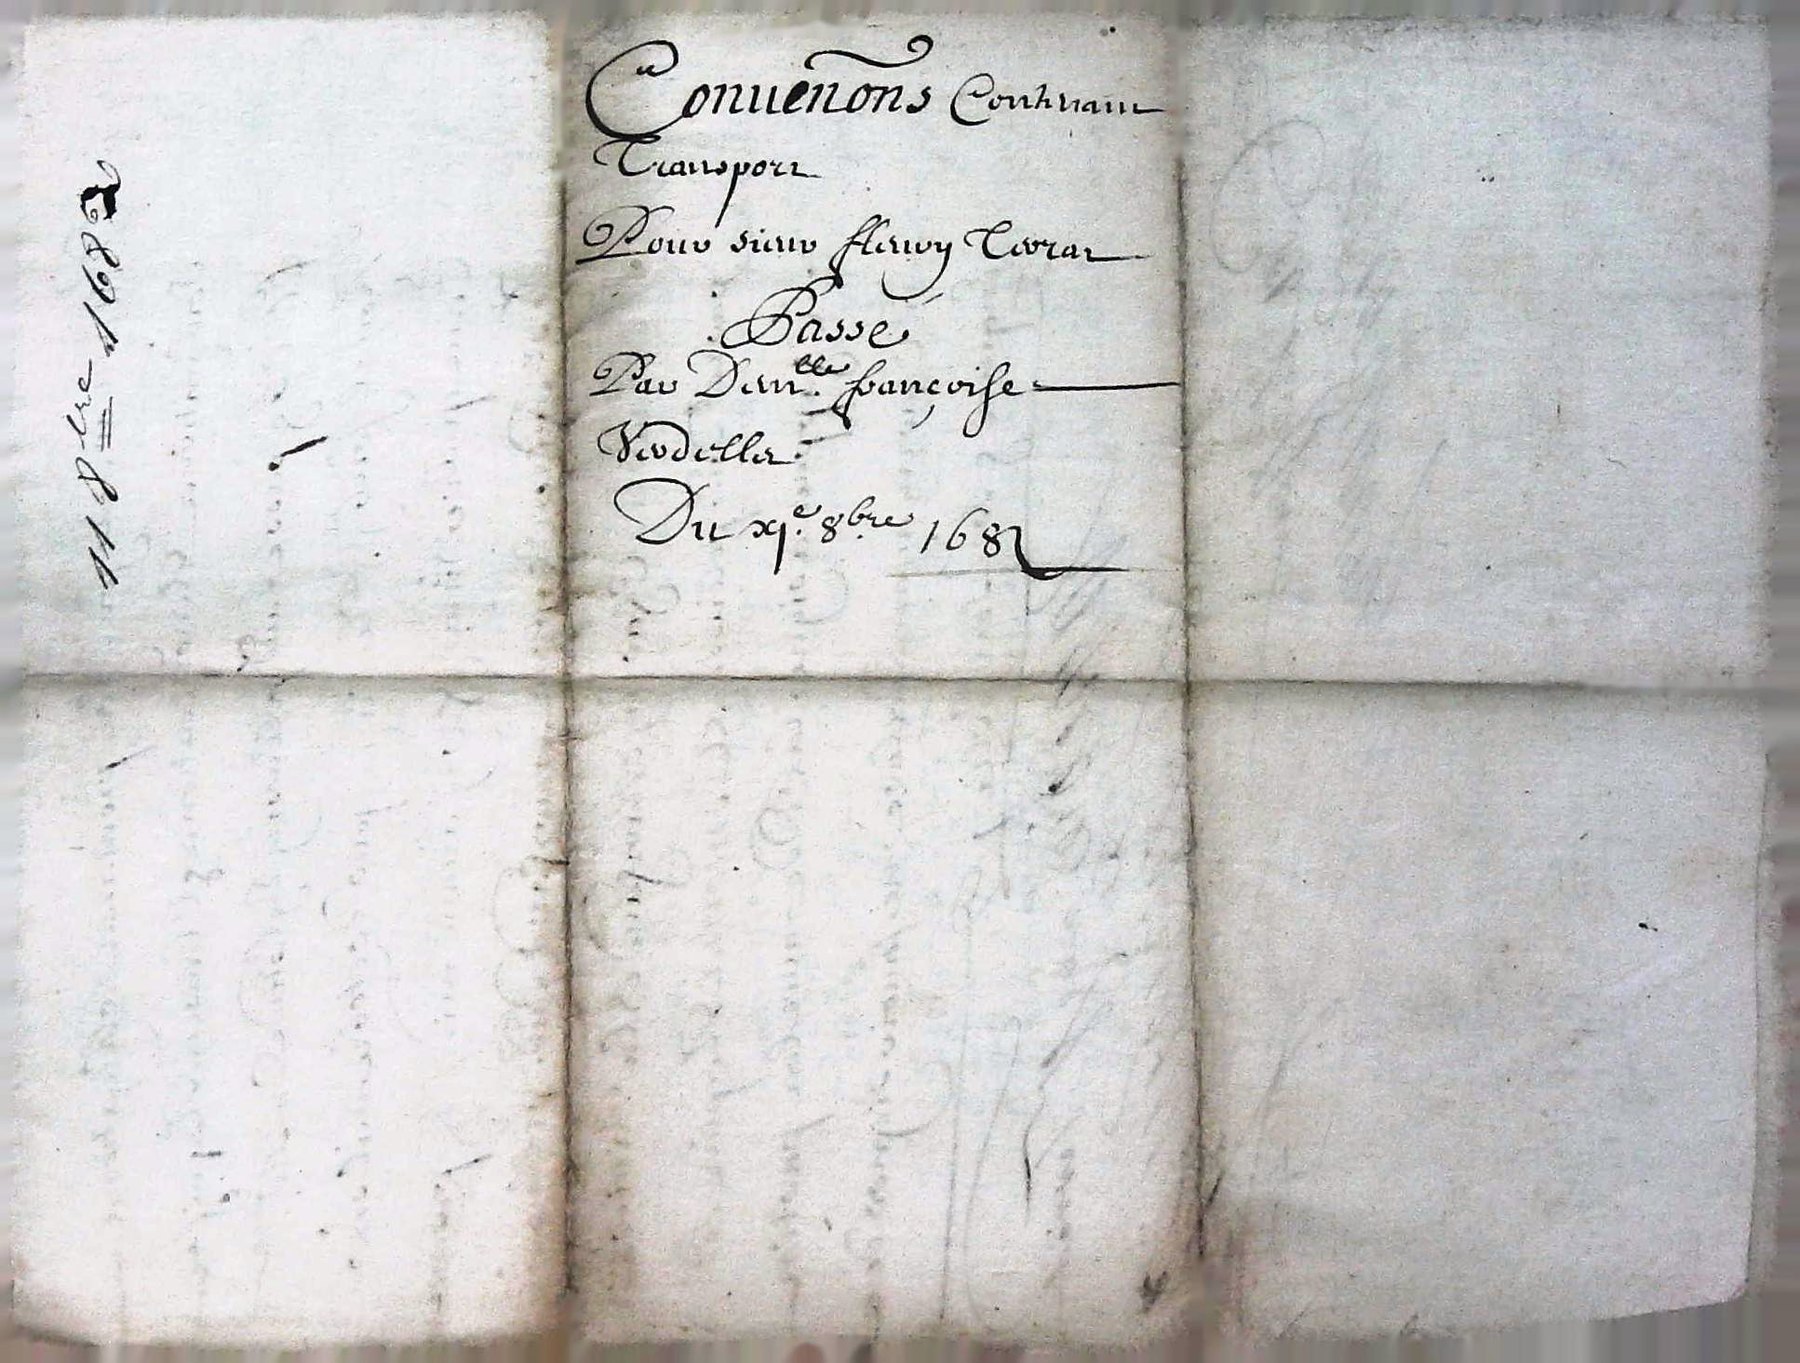 11 8bre 1682
Conuenons Contenant
Transport
Pour sieur fleury Terrat
Passé
Par Damlle françoise
Verdellet
Du xje 8bre 1682